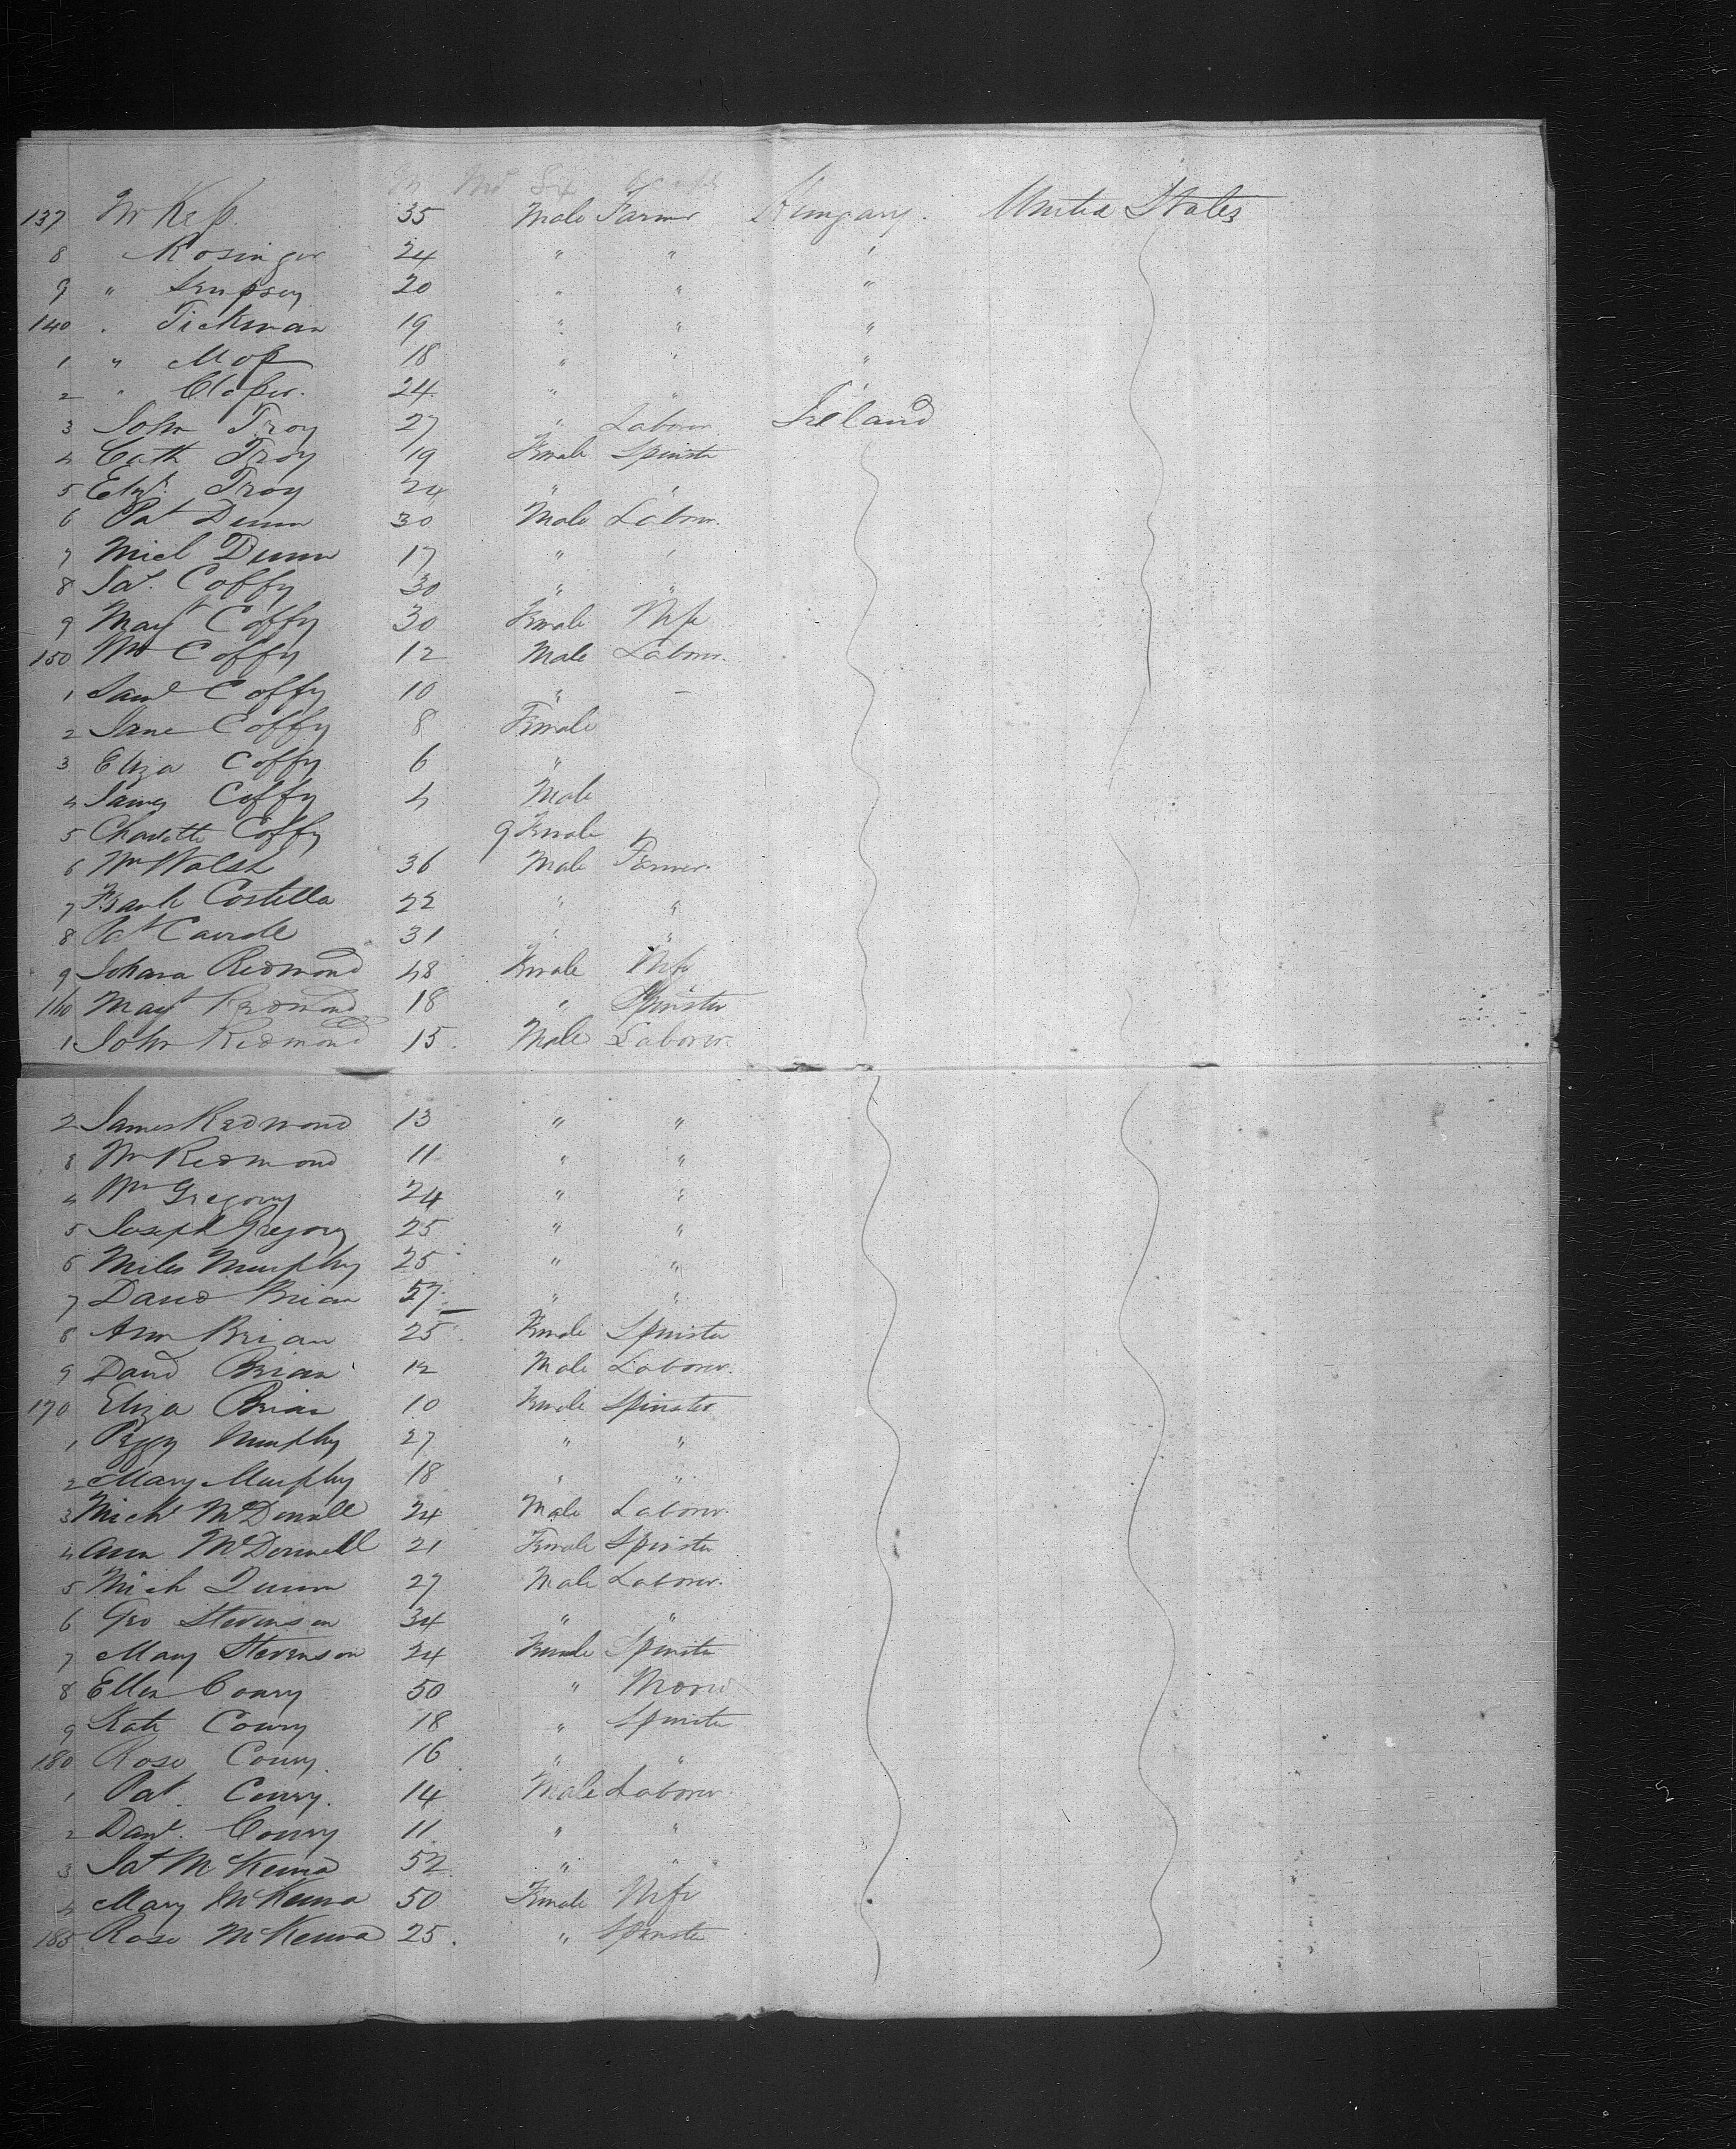 Yr Mo Sex Occupn
137 Mr Keß 35 Male Farmer Hungary. United States
8 Rosinger 24 " " "
9 " Sempsey 20 " " "
140 " Tickman 19 " " "
1 " Moß 18 " " "
2 " Claßer. 24 " " "
3 John Troy 27 " Laborer Ireland
4 Cath Troy 19 Female Spinster
5 Elizh Troy 24 " "
6 Pat Dunn 30 Male Laborer.
7 Micl Dunn 17 " "
8 Jas. Coffy 30 " "
9 Margt Coffy 30 Female Wife
150 Wm Coffy 12 Male Laborer.
1 Saml Coffy 10 " –
2 Jane Coffy 8 Female
3 Eliza Coffy 6 "
4 James Coffy 4 Male
5 Charlotte Coffy 9 Female
6 Wm Walsh 36 Male Farmer.
7 Frank Costella 22 " "
8 Pat Carroll 31 " "
9 Johana Redmond 48 Female Wife
160 Margt Redmond 18 " Spinster
1 John Redmond 15. Male Laborer
2 James Redmond 13 " "
3 Wm Redmond 11 " "
4 Wm Gregory 24 " "
5 Joseph Gregory 25 " "
6 Miles Murphy 25 " "
7 David Brian 57 " "
8 Ann Brian 25 Female Spinster
9 David Brian 12 Male Laborer.
170 Eliza Brian 10 Female Spinster
1 Peggy Murphy 27 " "
2 Mary Murphy 18 " "
3 Michl McDonnell 24 Male Laborer.
4 Ann McDonnell 21 Female Spinster
5 Mich Quinn 27 Male Laborer.
6 Geo Stevenson 34 " "
7 Mary Stevenson 24 Female Spinster
8 Ellen Conry 50 "
9 Kate Conry 18 " Spinster
180 Rose Conry. 16 " "
1 Pat. Conry. 14 Male Laborer
2 Danl. Conry 11 " "
3 Pat McKenna 52 " "
4 Mary McKenna 50 Female Wife
185 Rose McKenna 25. " Spinster